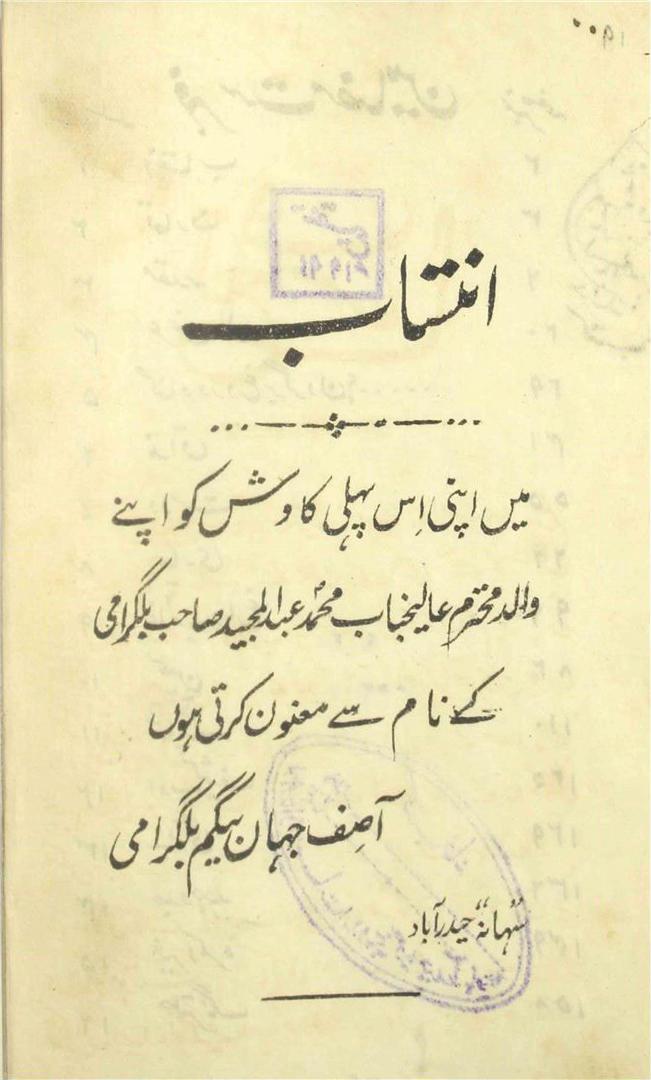 انتساب
میں اپنی اِس پہلی کاوش کو اپنے
والد محترم عالیجناب محمدؐ عبدالمجید صاحب بلگرامی
کے نام سے معنون کرتی ہوں
آصف جہان بیگم بلگرامی
"سُہانہ" حیدرآباد